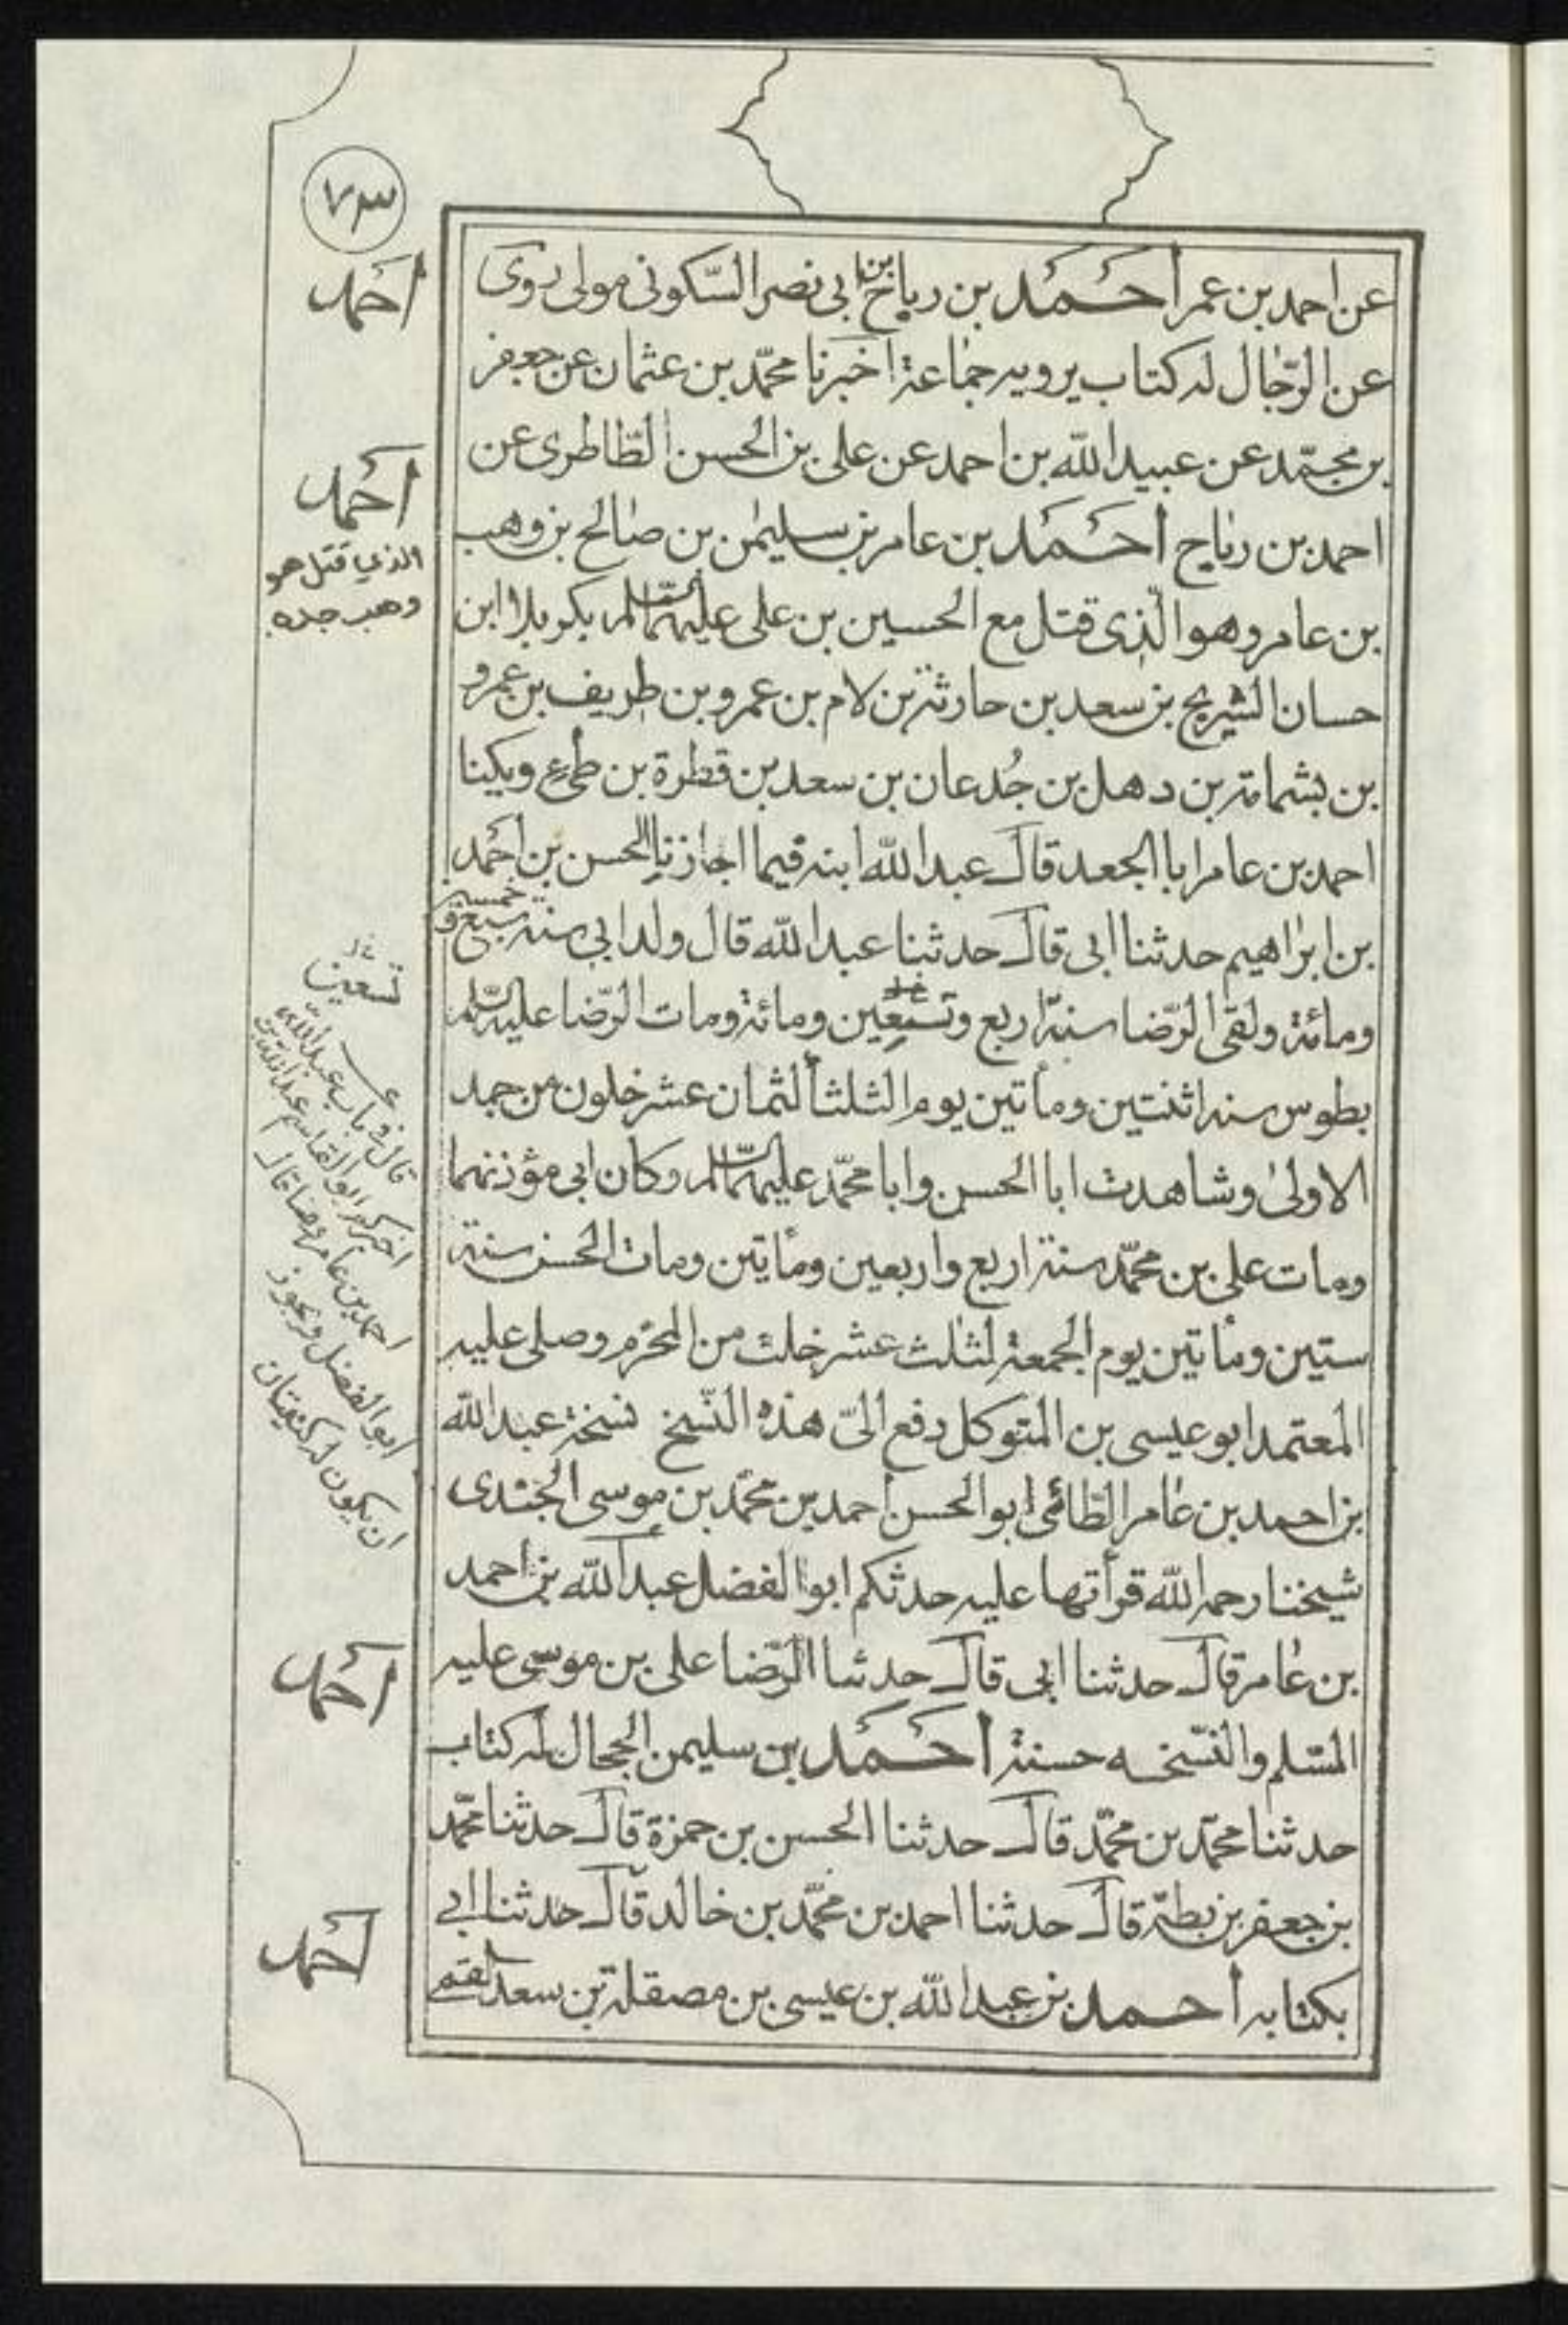 ٧٣
عن احمد بن عمر أحمد بن رباح بن ابى نصر السّكونى مولى روى
عن الرّجال له كتاب يرويه جماعة اخبرنا محمّد بن عثمان عن جعفر
بن محمّد عن عبيد الله بن احمد عن على بن الحسن الطّاطرى عن
احمد بن رباح أحمد بن عامر بن سليمن بن صالح بن وهب
بن عامر وهو الّذى قتل مع الحسين بن على عليهما السّلم بكربلا ابن
حسان الشريح بن سعد بن حارثة بن لام بن عمرو بن طريف بن عمرو
بن بشمامة بن دهل بن جُدعان بن سعد بن قطرة بن طىء ويكنا
احمد بن عامر ابا الجعد قال عبد الله ابنه فيما اجازنا الحسن بن أحمد
بن ابراهيم حدثنا ابى قال حدثنا عبد الله قال ولد ابى سنة سبع و خمسين
ومائة ولقى الرّضا سنة اربع وتسعين ومائة ومات الرّضا عليه السّلم
بطوس سنه اثنتين ومأتين يوم الثلثأ لثمان عشر خلون من جمد
الاولى وشاهدت ابا الحسن وابا محمّد عليهما السّلم وكان ابى مؤذنهما
ومات على بن محمّد سنة اربع واربعين ومأيتين ومات الحسن سنة
ستين ومأتين يوم الجمعة لثلث عشر خلت من المحرّم وصلى عليه
المعتمد ابو عيسى بن المتوكل دفع الىّ هذه النّسخ نسخة عبد الله
بن احمد بن عامر الطّائى ابو الحسن أحمد بن محمّد بن موسى الجندى
شيخنا رحمه الله قرأتها عليه حدثكم ابو الفضل عبد الله بن أحمد
بن عامر قال حدثنا ابى قال حدثنا الرّضا على بن موسى عليه
السّلم والنّسخه حسنة أحمد بن سليمن الحجال له كتاب
حدثنا محمّد بن محمّد قال حدثنا الحسن بن حمزة قال حدثنا محمّد
بن جعفر بن بطة قال حدثنا احمد بن محمّد بن خالد قال حدثنا ابى
بكتابه أحمد بن عبد الله بن عيسى بن مصقلة بن سعد القمى
أحمد
أحمد
الذي قتل هو
وهب جده
تسعين
قال في باب عبد الله
احمد بن عامر
ابو الفضل ويجوز
ان يكون له كنيتان
أحمد
أحمد